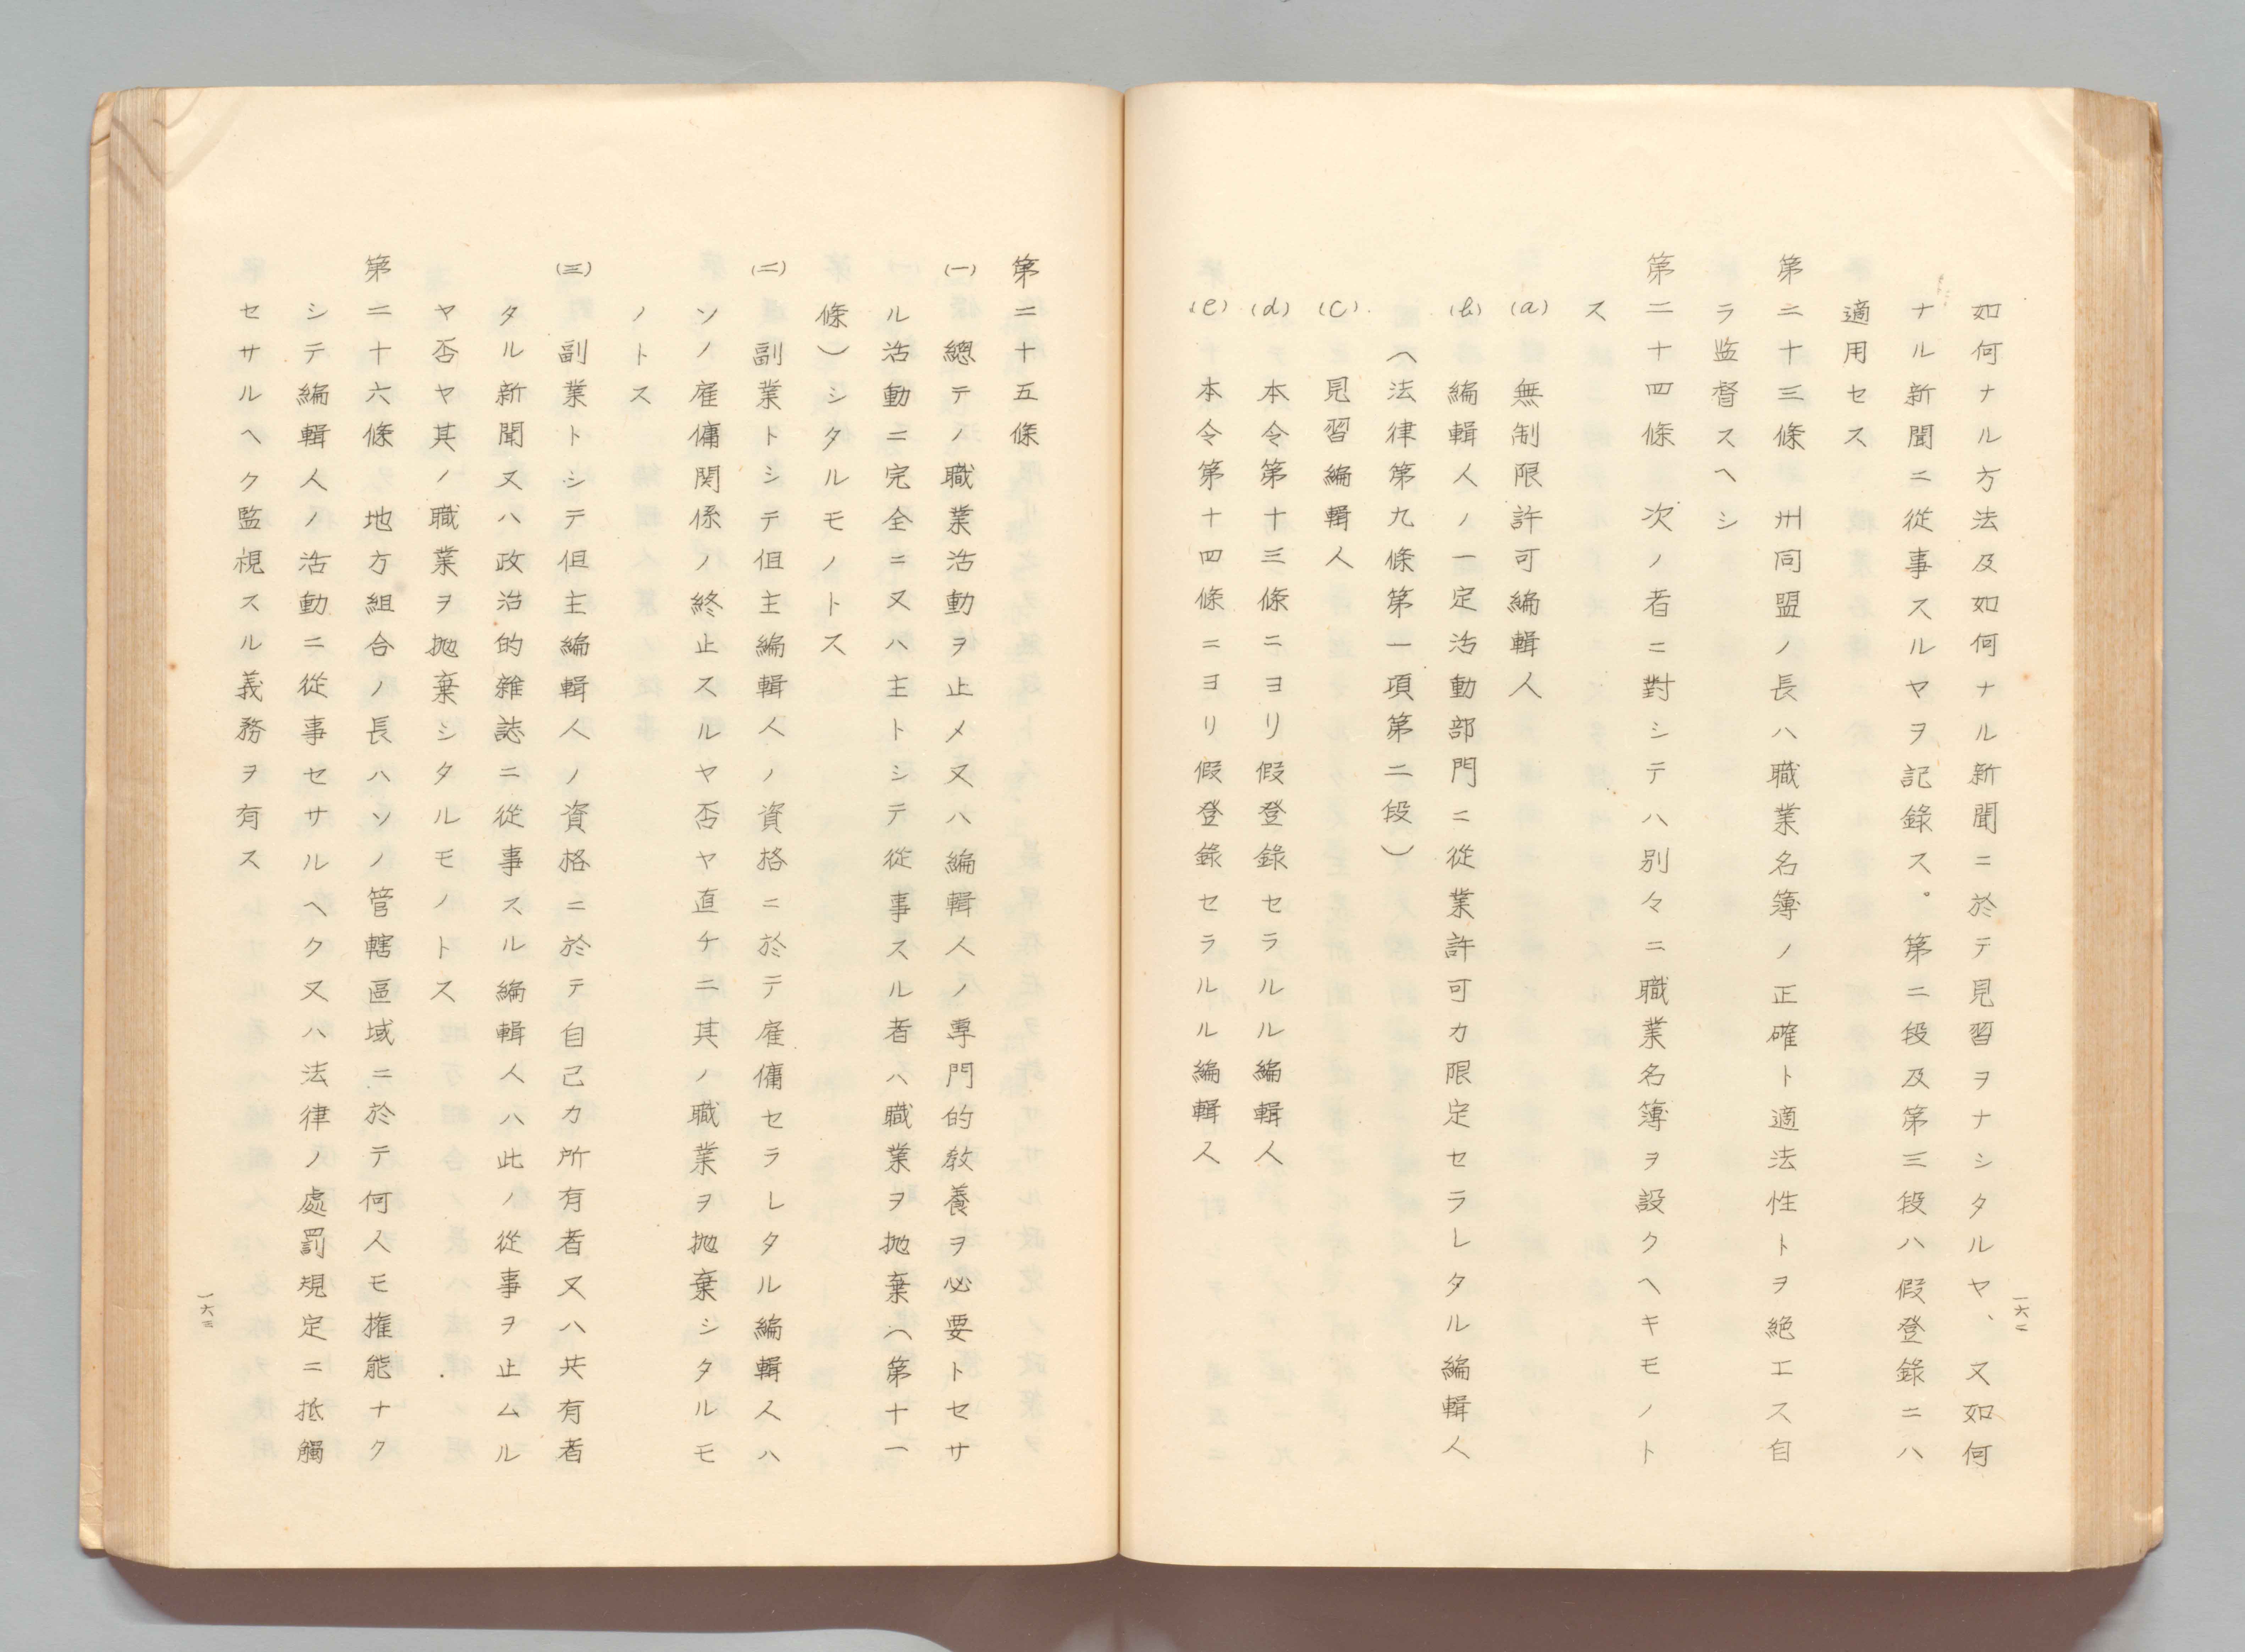 如何ナル方法及如何ナル新聞ニ於テ見習ヲナシタルヤ、又如何
ナル新聞ニ從事スルヤヲ記錄ス。第二段及第三段ハ假登錄ニハ
適用セス
第二十三條　州同盟ノ長ハ職業名簿ノ正確ト適法性トヲ絶エス自
ラ監督スヘシ
第二十四條　次ノ者ニ對シテハ別々ニ職業名簿ヲ設クヘキモノト
ス
(a)　無制限許可編輯人
(b)　編輯人ノ一定活動部門ニ從業許可カ限定セラレタル編輯人
（法律第九條第一項第二段）
(c)　見習編輯人
(d)　本令第十三條ニヨリ假登錄セラルル編輯人
(e)　本令第十四條ニヨリ假登錄セラルル編輯人
一六二
第二十五條
(一)　總テノ職業活動ヲ止メ又ハ編輯人ノ專門的敎養ヲ必要トセサ
ル活動ニ完全ニ又ハ主トシテ從事スル者ハ職業ヲ抛棄（第十一
條）シタルモノトス
(二)　副業トシテ但主編輯人ノ資格ニ於テ雇傭セラレタル編輯人ハ
ソノ雇傭関係ノ終止スルヤ否ヤ直ケニ其ノ職業ヲ抛棄シタルモ
ノトス
(三)　副業トシテ但主編輯人ノ資格ニ於テ自己カ所有者又ハ共有者
タル新聞又ハ政治的雜誌ニ從事スル編輯人ハ此ノ從事ヲ止ムル
ヤ否ヤ其ノ職業ヲ抛棄シタルモノトス
第二十六條　地方組合ノ長ハソノ管轄區域ニ於テ何人モ権能ナク
シテ編輯人ノ活動ニ從事セサルヘク又ハ法律ノ處罰規定ニ抵觸
セサルヘク監視スル義務ヲ有ス
一六三